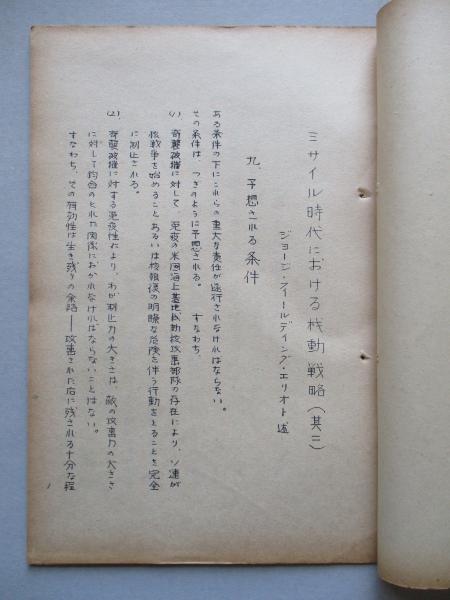 ミサイル時代における机動戦略（其三）
ジョージ・フイールデイング・エリオト述
九、予想される条件
ある条件の下にこれらの重大な責任が遂行されなければならない。
その条件は、つぎのように予想される。すなわち、
(1) 奇襲破摧に対して免疫の米国海上基地机動核攻撃部隊の存在により、ソ連が
核戦争を始めることあるいは核報復の明瞭な危険を伴う行動をとることを完全
に制止される。
(2) 奇襲破摧に対する免疫性により、わが制止力の大きさは、敵の攻撃力の大きさ
に対して釣合のとれた関係におかれなければならないことはない。
すなわち、その有効性は生き残りの余路――攻撃された后に残される十分な程